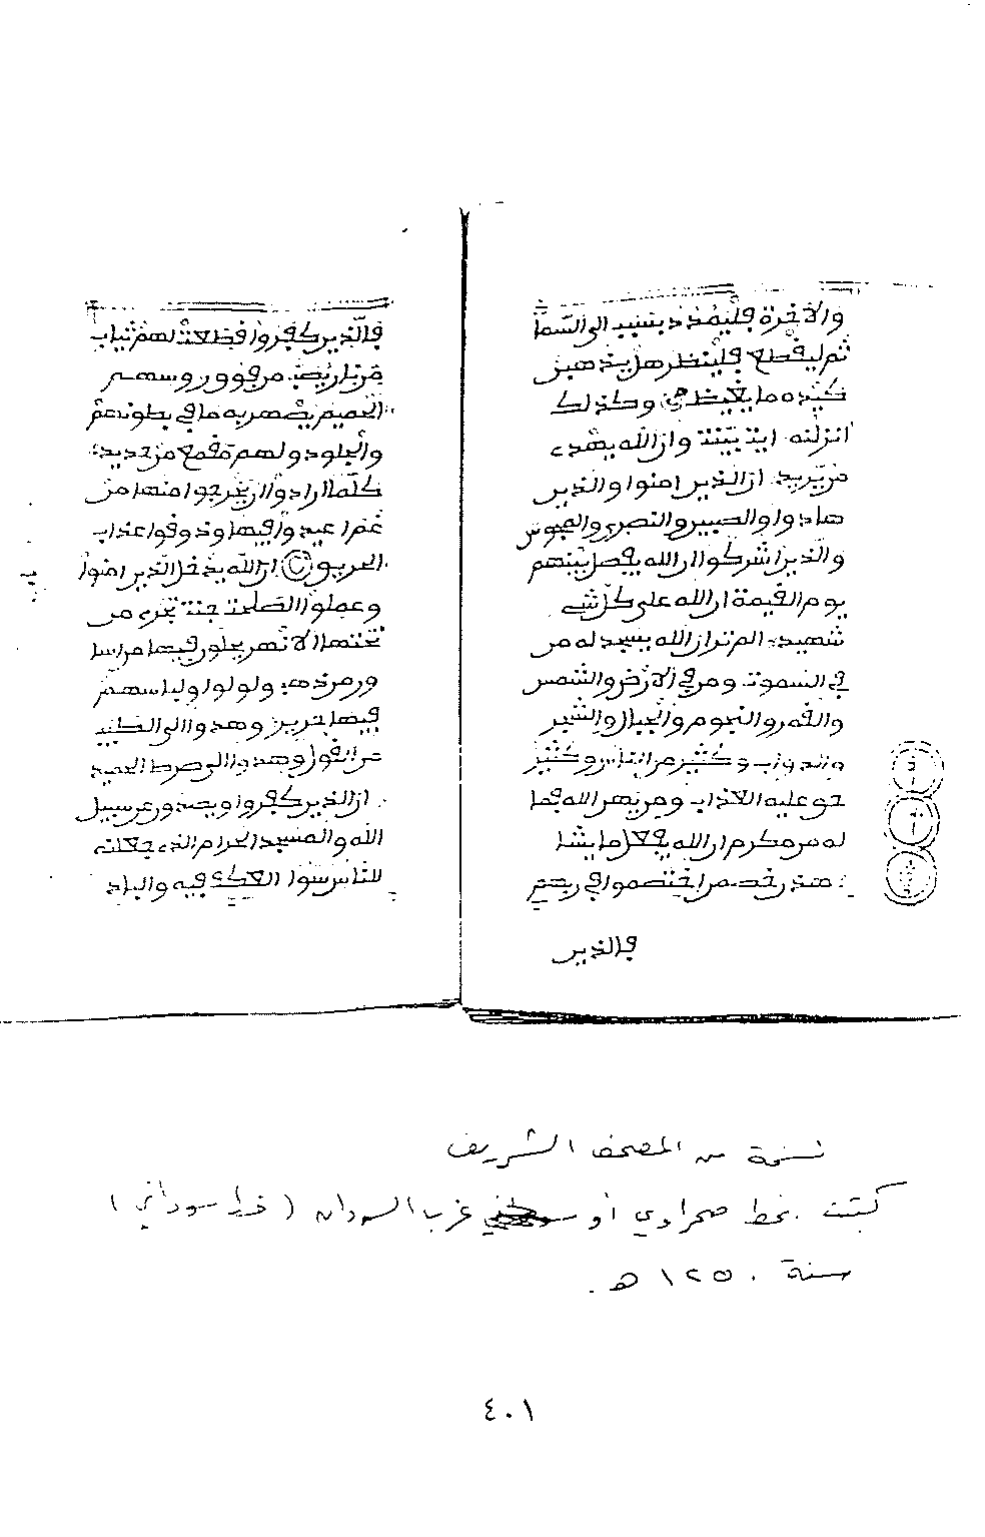 والاخرة فليمدد بسبب الى السما
ثم ليقطع فلينظر هل يذهبن
كيده ما يغيظ وكذلك
انزلنه ايت بينت وان الله يهدے
من يريد ان الذين امنوا والذين
هادوا والصبين والنصرى والمجوس
والذين اشركوا ان الله يفصل بينهم
يوم القيمة ان الله على كل شے
شهيد الم تر ان الله يسجد له من
في السموت ومن في الارض والشمس
والقمر والنجوم والجبال والشجر
والدواب وكثير من الناس وكثير
حق عليه العذاب ومن يهن الله فما
له من مكرم ان الله يفعل ما يشا
هذن خصمن اختصموا في ربهم
فالذين
فالذين كفروا قطعت لهم ثياب
من نار يصب من فوق روسهم
الحميم يصهر به ما في بطونهم
والجلود ولهم مقمع من حديد
كلما ارادوا ان يخرجوا منها من
غم اعيدوا فيها وذوقوا عذاب
الحريق ان الله يدخل الذين امنوا
وعملوا الصلحت جنت تجرے من
تحتها الانهر يحلون فيها من اسا
ور من ذهب ولولوا ولباسهم
فيها حرير وهدوا الى الطيب
من القول وهدوا الى صرط الحميد
ان الذين كفروا ويصدون عن سبيل
الله والمسجد الحرام الذے جعلنه
للناس سوا العكف فيه والباد
نسخة من المصحف الشريف
كتبت بخط صحراوي أو غرب السودان (خط سوداني)
سنة ١٢٥٠ هـ.
٤٠١